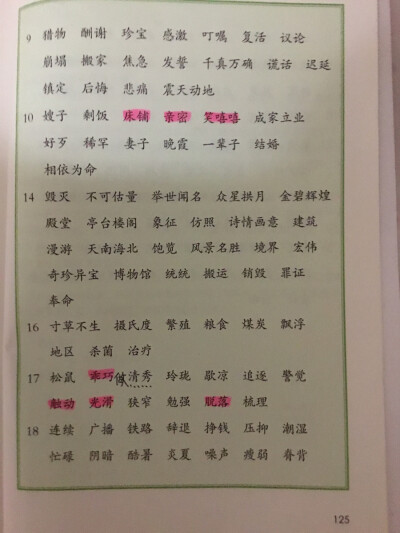 9 猎物 酬谢 珍宝 感激 叮嘱 复活 议论
崩塌 搬家 焦急 发誓 千真万确 谎话 迟延
镇定 后悔 悲痛 震天动地
10 嫂子 剩饭 床铺 亲密 笑嘻嘻 成家立业
好歹 稀罕 妻子 晚霞 一辈子 结婚
相依为命
14 毁灭 不可估量 举世闻名 众星拱月 金碧辉煌
殿堂 亭台楼阁 象征 仿照 诗情画意 建筑
漫游 天南海北 饱览 风景名胜 境界 宏伟
奇珍异宝 博物馆 统统 搬运 销毁 罪证
奉命
16 寸草不生 摄氏度 繁殖 粮食 煤炭 飘浮
地区 杀菌 治疗
17 松鼠 乖巧 清秀 玲珑 歇凉 追逐 警觉
触动 光滑 狭窄 勉强 脱落 梳理
18 连续 广播 铁路 辞退 挣钱 压抑 潮湿
忙碌 阴暗 酷暑 炎夏 噪声 瘦弱 脊背
125